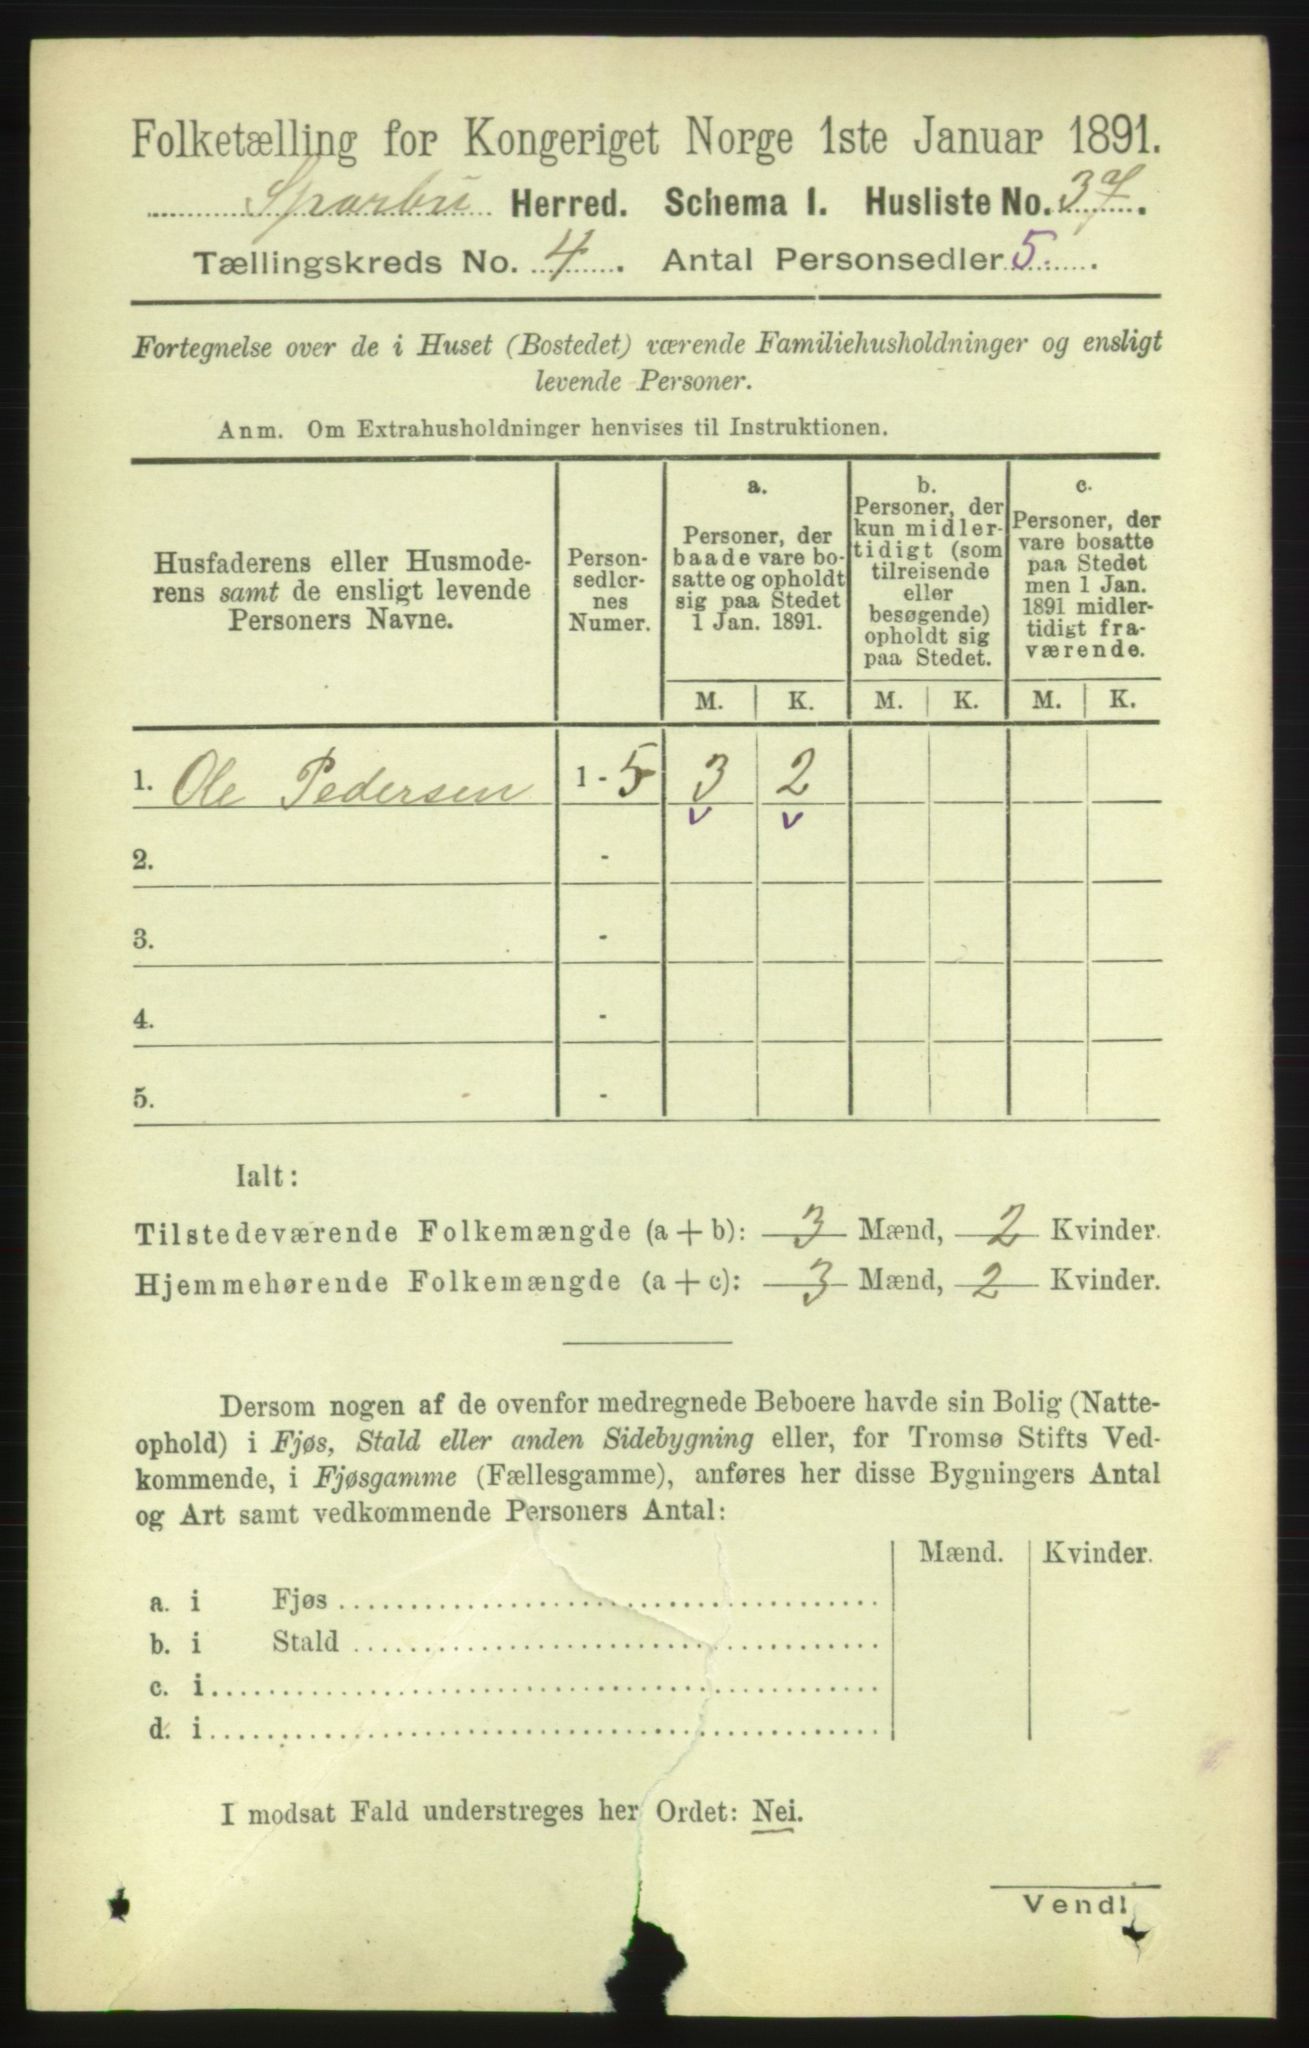 Folketælling for Kongeriget Norge 1ste Januar 1891.
Sparbu Herred. Schema I. Husliste No. 37.
Tællingskreds No. 4. Antal Personsedler 5.
Fortegnelse over de i Huset (Bostedet) værende Familiehusholdninger og ensligt
levende Personer.
Anm. Om Extrahusholdninger henvises til Instruktionen.
Husfaderens eller Husmode-
rens samt de ensligt levende
Personers Navne.
Person-
sedler-
nes
Numer.
a.
Personer, der
baade vare bo-
satte og opholdt
sig paa Stedet
1 Jan. 1891.
b.
Personer, der
kun midler-
tidigt (som
tilreisende
eller
besøgende)
opholdt sig
paa Stedet.
c.
Personer, der
vare bosatte
paa Stedet
men 1 Jan.
1891 midler-
tidigt fra-
værende.
M. K. M. K. M. K.
1. Ole Pedersen 1 - 5 3 2
v v
2. -
3. -
4. -
5. -
Ialt:
Tilstedeværende Folkemængde (a + b): 3 Mænd, 2 Kvinder.
Hjemmehørende Folkemængde (a + c): 3 Mænd, 2 Kvinder.
Dersom nogen af de ovenfor medregnede Beboere havde sin Bolig (Natte-
ophold) i Fjøs, Stald eller anden Sidebygning eller, for Tromsø Stifts Ved-
kommende, i Fjøsgamme (Fællesgamme), anføres her disse Bygningers Antal
og Art samt vedkommende Personers Antal:
Mænd. Kvinder.
a. i Fjøs
b. i Stald
c. i
d. i
I modsat Fald understreges her Ordet: Nei.
Vend!